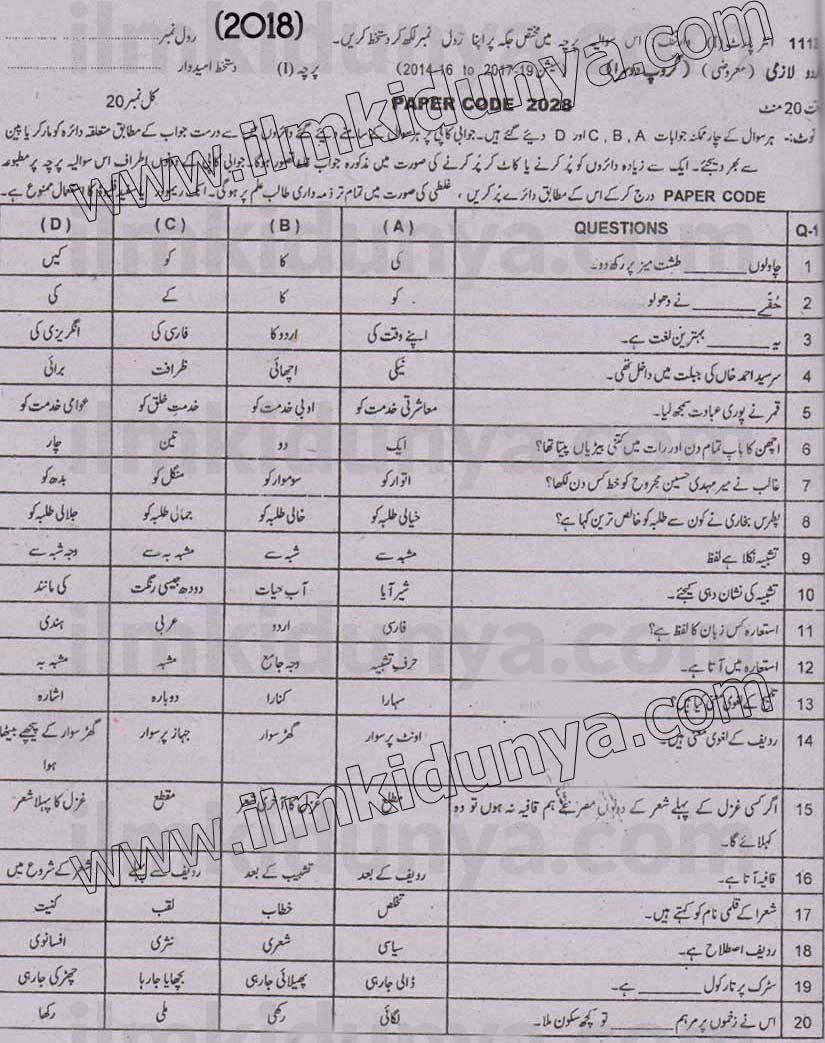 (2018)
1118 انٹر پارٹ (I) اس سوالیہ پرچہ میں مختص جگہ پر اپنا رول نمبر لکھ کر دستخط کریں۔ رول نمبر
اردو لازمی (معروضی) (گروپ دوسرا) (سیشن 19-2017 to 16-2014) پرچہ (I) دستخط امیدوار
وقت 20 منٹ PAPER CODE 2028 کل نمبر 20
نوٹ:- ہر سوال کے چار ممکنہ جوابات A ,B ,C اور D دیئے گئے ہیں۔ جوابی کاپی پر ہر سوال کے سامنے دیئے گئے دائروں میں سے درست جواب کے مطابق متعلقہ دائرہ کو مارکر یا پین
سے بھر دیجئے۔ ایک سے زیادہ دائروں کو پُر کرنے یا کاٹ کر پُر کرنے کی صورت میں مذکورہ جواب غلط تصور ہوگا۔ جوابی کاپی کے اطراف اس سوالیہ پرچہ پر مطبوعہ
PAPER CODE درج کر کے اس کے مطابق دائرے پُر کریں، غلطی کی صورت میں تمام تر ذمہ داری طالب علم پر ہوگی۔ انک ریموور یا سفید فلیوڈ کا استعمال ممنوع ہے۔
Q-1 QUESTIONS (A) (B) (C) (D)
1 چاولوں ______ طشت میز پر رکھ دو۔ کی کا کو کیں
2 حُقّے ______ نے دھولو کو کا کے کی
3 یہ ______ بہترین لغت ہے۔ اپنے وقت کی اردو کا فارسی کی انگریزی کی
4 سرسید احمد خاں کی جبلت میں داخل تھی۔ نیکی اچھائی ظرافت برائی
5 قمر نے پوری عبادت سمجھ لیا۔ معاشرتی خدمت کو ادبی خدمت کو خدمتِ خلق کو عوامی خدمت کو
6 اچھن کا باپ تمام دن اور رات میں کتنی بیڑیاں پیتا تھا؟ ایک دو تین چار
7 غالب نے میر مہدی حسین مجروح کو خط کس دن لکھا؟ اتوار کو سوموار کو منگل کو بدھ کو
8 پطرس بخاری نے کون سے طلبہ کو خالص ترین کہا ہے؟ خیالی طلبہ کو خالی طلبہ کو جمالی طلبہ کو جلالی طلبہ کو
9 تشبیہ نکلا ہے لفظ مشبہ سے شبہ سے مشبہ بہ سے وجہ شبہ سے
10 تشبیہ کی نشان دہی کیجئے۔ شیر آیا آبِ حیات دودھ جیسی رنگت کی مانند
11 استعارہ کس زبان کا لفظ ہے؟ فارسی اردو عربی ہندی
12 استعارہ میں آتا ہے۔ حرفِ تشبیہ وجہ جامع مشبہ مشبہ بہ
13 تلمیح کے لغوی معنی کیا ہیں؟ سہارا کنارا دوبارہ اشارہ
14 ردیف کے لغوی معنی ہیں۔ اونٹ پر سوار گھڑ سوار جہاز پر سوار گھڑ سوار کے پیچھے بیٹھا
ہوا
15 اگر کسی غزل کے پہلے شعر کے دونوں مصرعے ہم قافیہ نہ ہوں تو وہ مطلع غزل کا آخری شعر مقطع غزل کا پہلا شعر
کہلائے گا۔
16 قافیہ آتا ہے۔ ردیف کے بعد تشبیب کے بعد ردیف سے پہلے شعر کے شروع میں
17 شعرا کے قلمی نام کو کہتے ہیں۔ تخلص خطاب لقب کنیت
18 ردیف اصطلاح ہے۔ سیاسی شعری نثری افسانوی
19 سڑک پر تارکول ______ ہے۔ ڈالی جارہی پھیلائی جارہی بچھایا جارہا چھڑکی جارہی
20 اس نے زخموں پر مرہم ______ تو کچھ سکون ملا۔ لگائی رکھی ملی رکھا
www.ilmkidunya.com
www.ilmkidunya.com
ilmkidunya.com
ilmkidunya.com
ilmkidunya.com
ilmkidunya.com
ilmkidunya.com